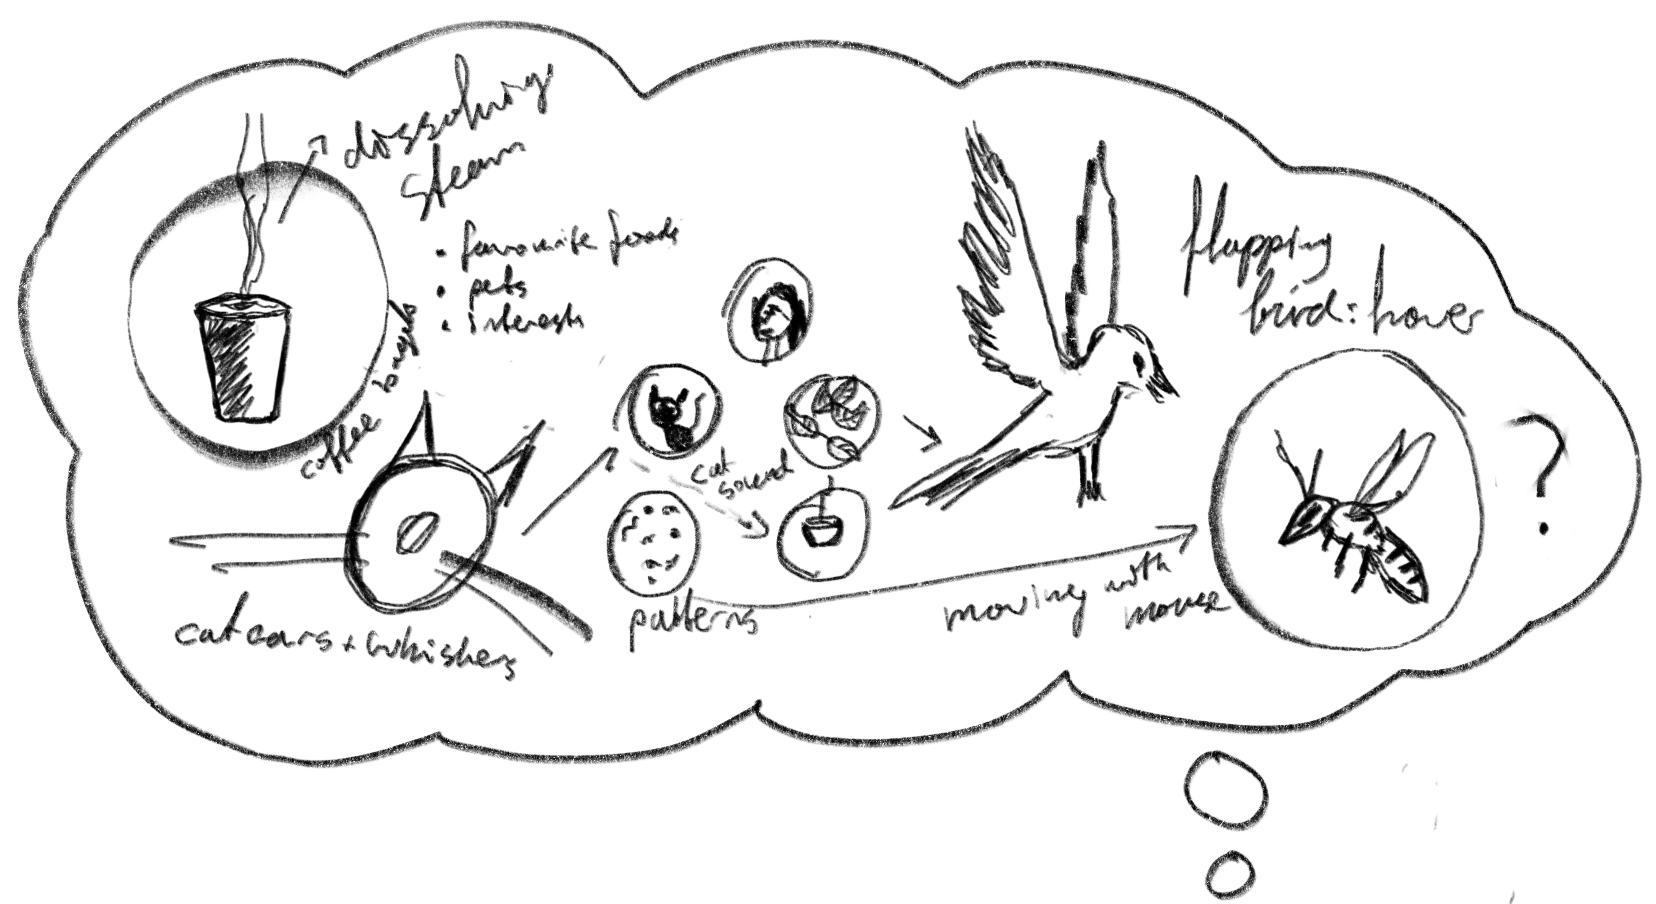 dissolving
steam
• favourite foods
• pets
• interests
coffee
cat ears + whiskers
cat
sound
patterns
flapping
bird: hover
moving with
mouse
?